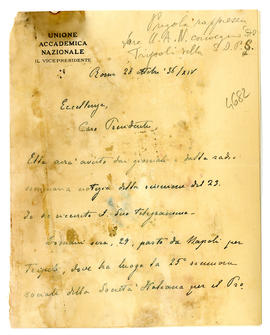 UNIONE
ACCADEMICA
NAZIONALE
IL VICEPRESIDENTE
Pregola rappresen
tare U.A.N. convegno
Tripoli della S.I.P.S.
4682
Roma 28 35/XIV
Eccellenza,
Caro Presidente,
Ella avrà avuto dai giornali e dalla radio
notizia della riunione del 23.
Io ricevetti il Suo telegramma.
Domani sera, 29, parto da Napoli per
Tripoli, dove ha luogo la 25ª riunione
sociale della Società Italiana per il Pro